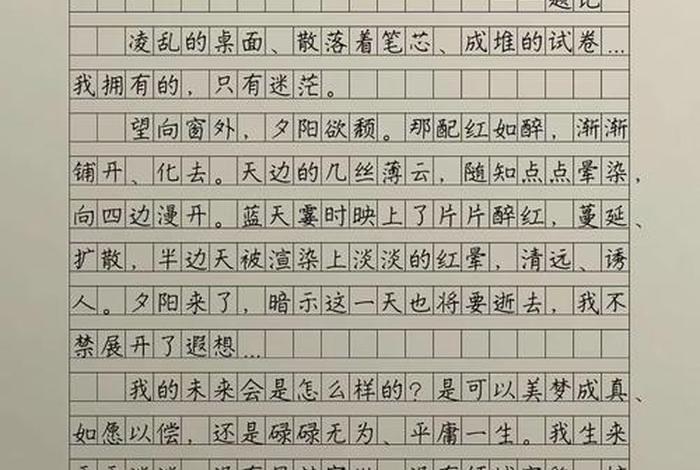 题记
凌乱的桌面、散落着笔芯、成堆的试卷…
我拥有的，只有迷茫。
望向窗外，夕阳欲颓。那配红如醉，渐渐
铺开、化去。天边的几丝薄云，随知点点晕染，
向四边漫开。蓝天霎时映上了片片醉红，蔓延、
扩散，半边天被渲染上淡淡的红晕，清远、诱
人。夕阳来了，暗示这一天也将要逝去，我不
禁展开了遐想…
我的未来会是怎么样的？是可以美梦成真、
如愿以偿，还是碌碌无为、平庸一生。我生来